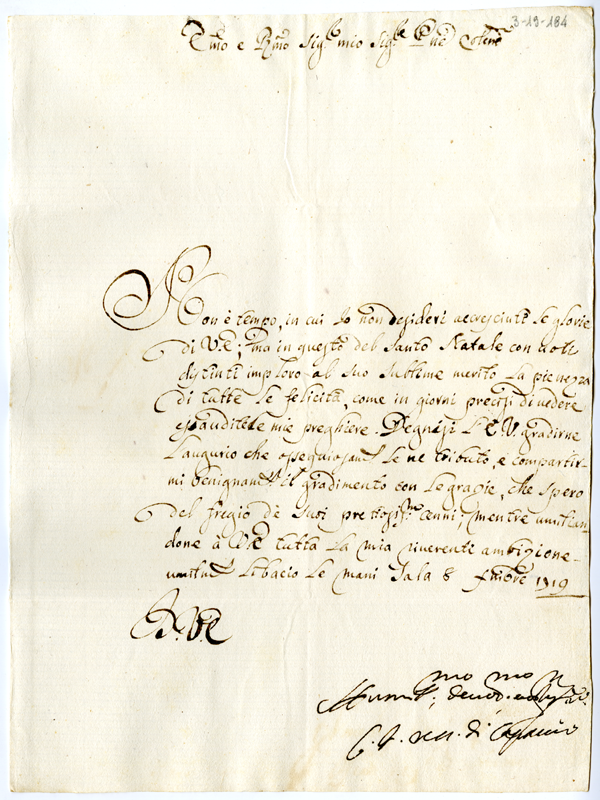 3-19-184
Emo e Rmo Sigr mio Sigr e Pne Colmo
Non è tempo, in cui Io non desideri accresciute le glorie
di V.E., ma in questo del Santo Natale con voti
distinti imploro al suo sublime merito la pienezza
di tutte le felicità, come in giorni precisi di vedere
esaudite le mie preghiere. Degnisi l'E.V. gradirne
l'augurio che ossequiosamte le ne tributo, e compartir-
mi benignamte il gradimento con le grazie, che spero
del fregio de suoi prettosismi cenni, mentre umilian
done à V.E. tutta la mia riverente ambizione
umilmte li bacio le mani Sala 8 Xmbre 1719
D. V. E.
mo mo
Humil, devot.
di Capaccio